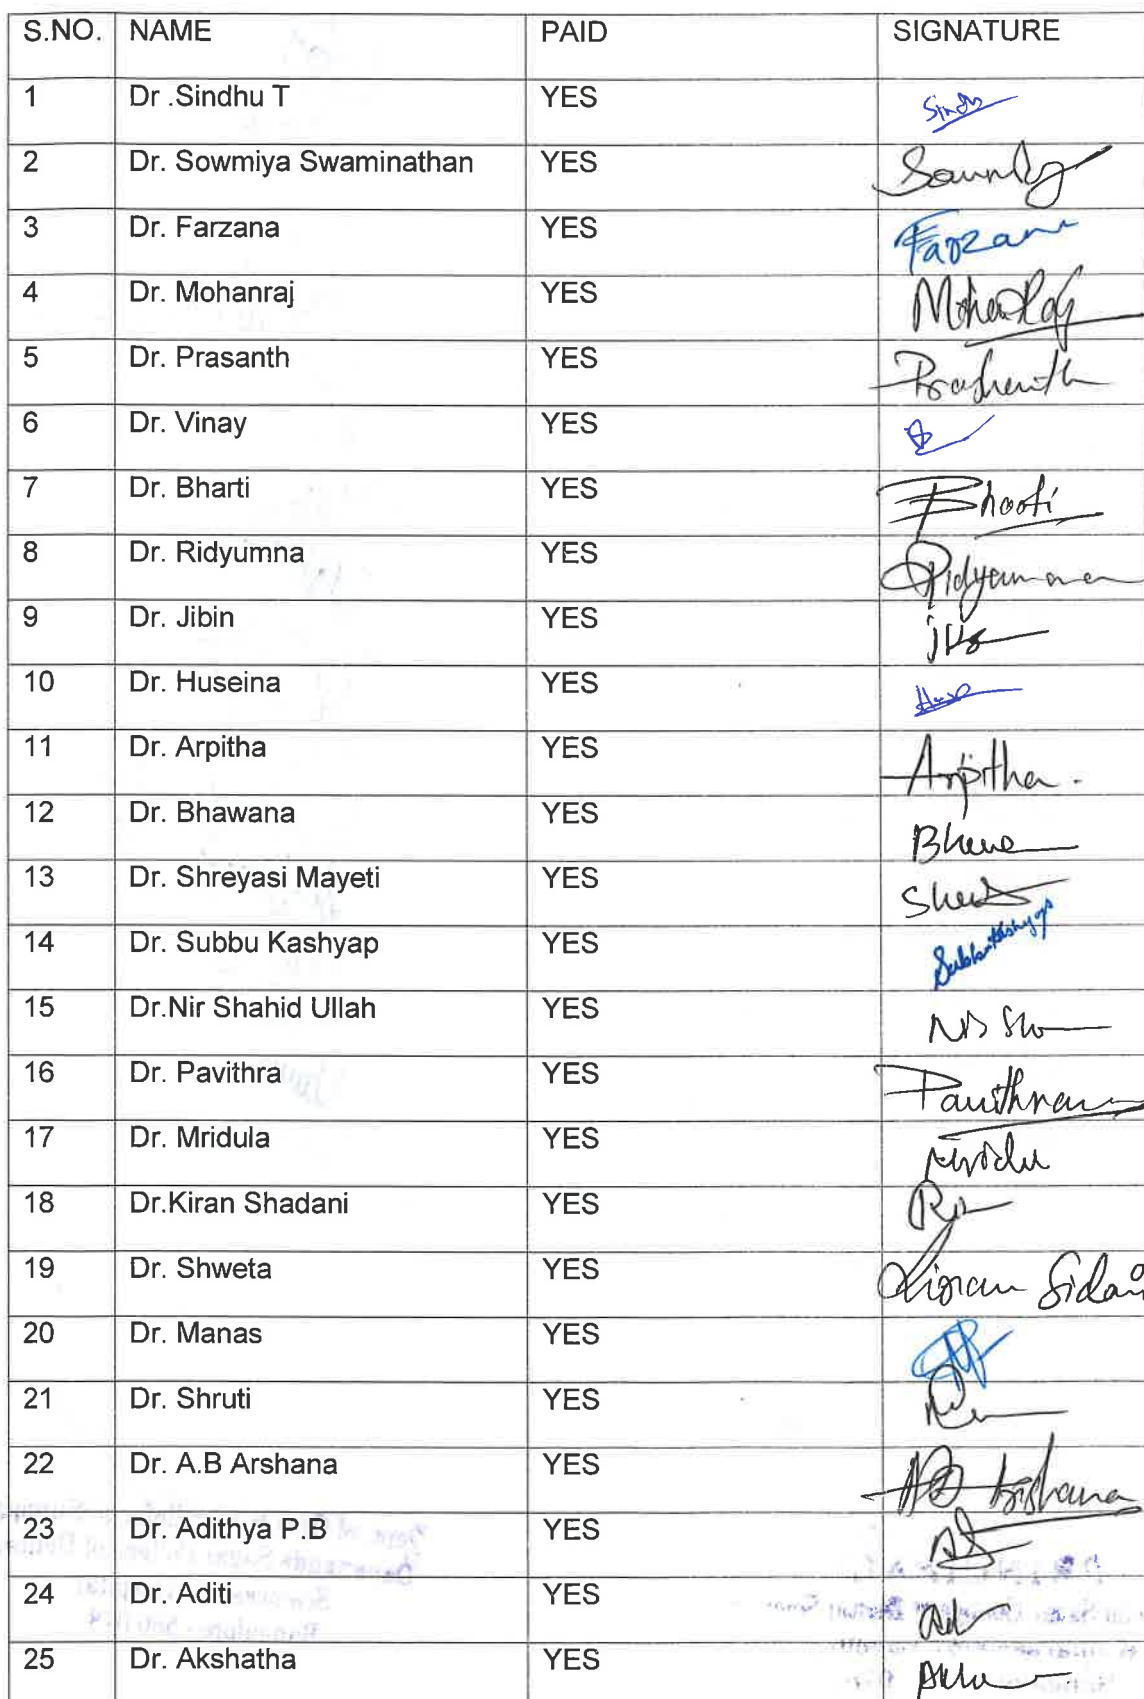 S.NO. NAME PAID SIGNATURE
1 Dr .Sindhu T YES Sindhu
2 Dr. Sowmiya Swaminathan YES
3 Dr. Farzana YES Farzana
4 Dr. Mohanraj YES MohanRaj
5 Dr. Prasanth YES Prashanth
6 Dr. Vinay YES
7 Dr. Bharti YES Bharti
8 Dr. Ridyumna YES Ridyumna
9 Dr. Jibin YES
10 Dr. Huseina YES
11 Dr. Arpitha YES Arpitha.
12 Dr. Bhawana YES
13 Dr. Shreyasi Mayeti YES
14 Dr. Subbu Kashyap YES Subbu Kashyap
15 Dr.Nir Shahid Ullah YES
16 Dr. Pavithra YES Pavithra
17 Dr. Mridula YES Mridu
18 Dr.Kiran Shadani YES
19 Dr. Shweta YES Kiran Sidani
20 Dr. Manas YES
21 Dr. Shruti YES
22 Dr. A.B Arshana YES AB Arshana
23 Dr. Adithya P.B YES
24 Dr. Aditi YES Ad
25 Dr. Akshatha YES